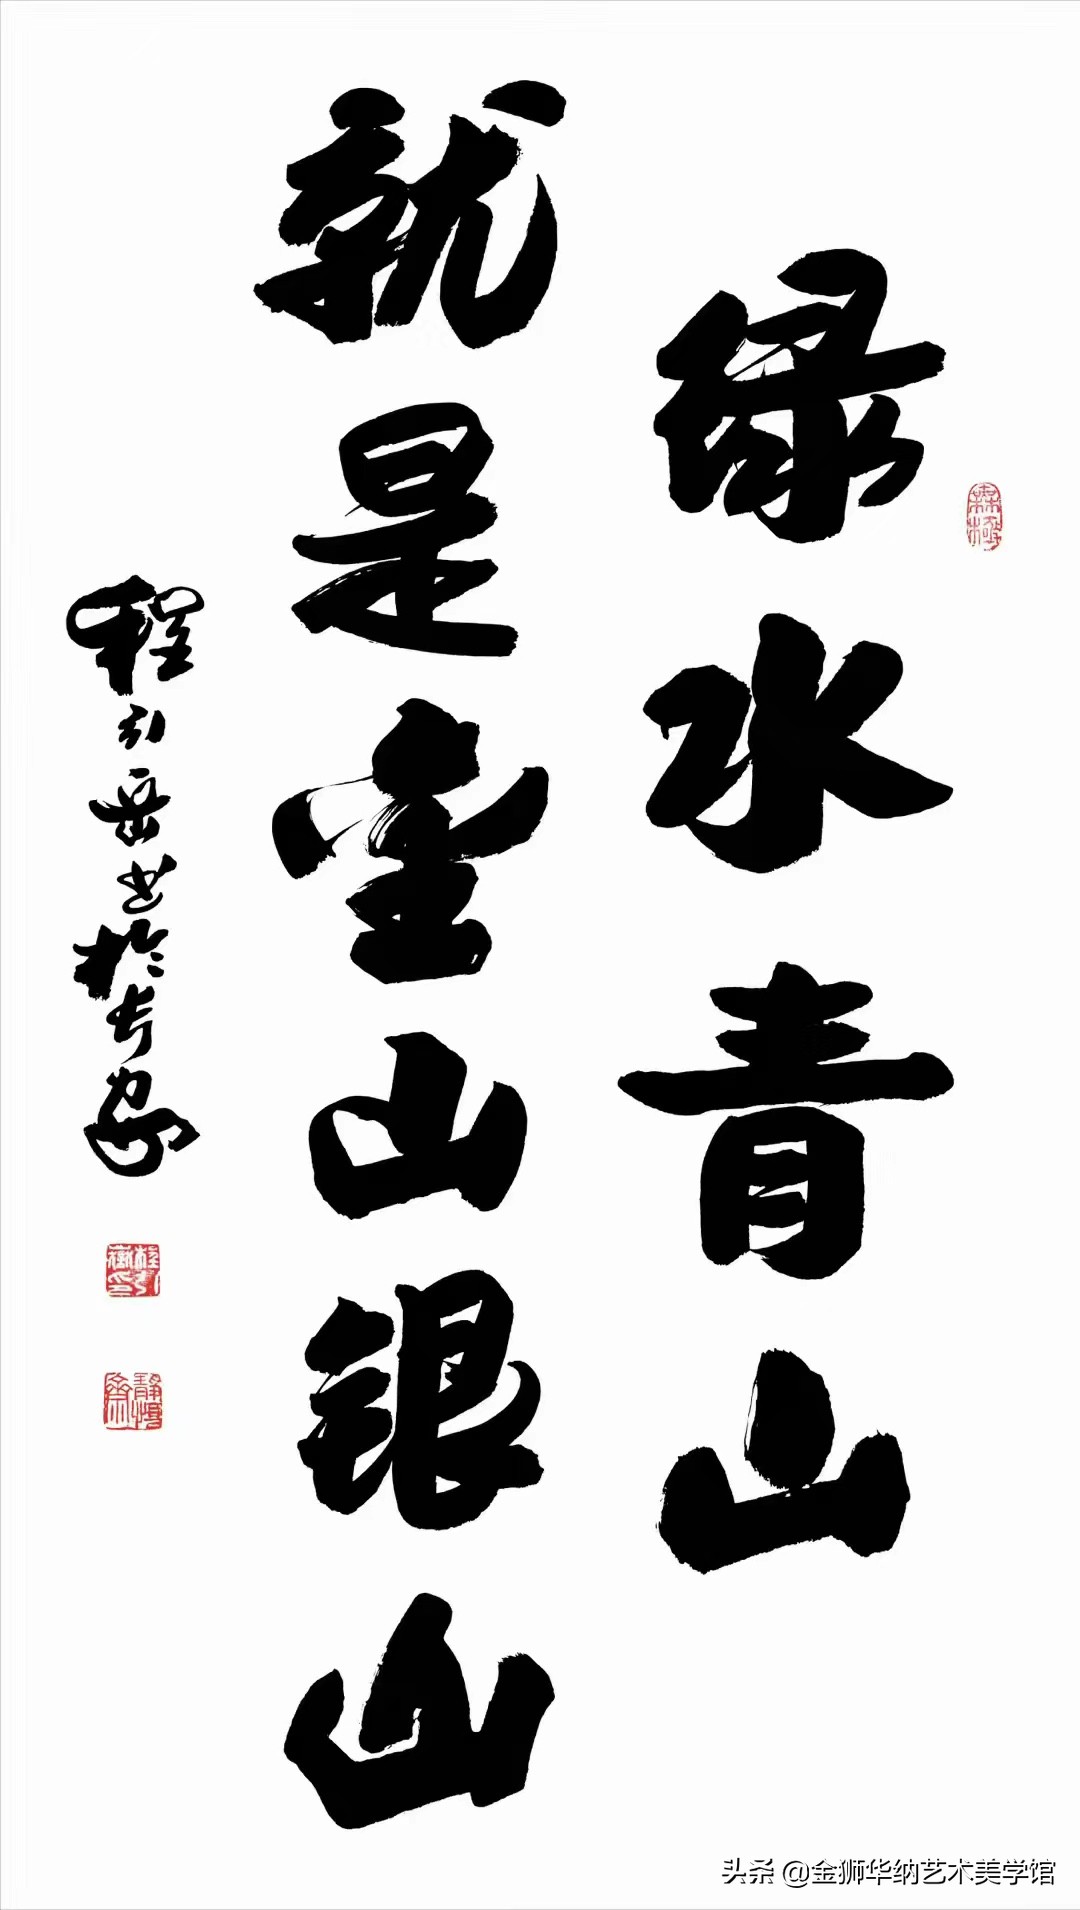 绿水青山
就是金山银山
程引岳书於长安
头条 @金狮华纳艺术美学馆